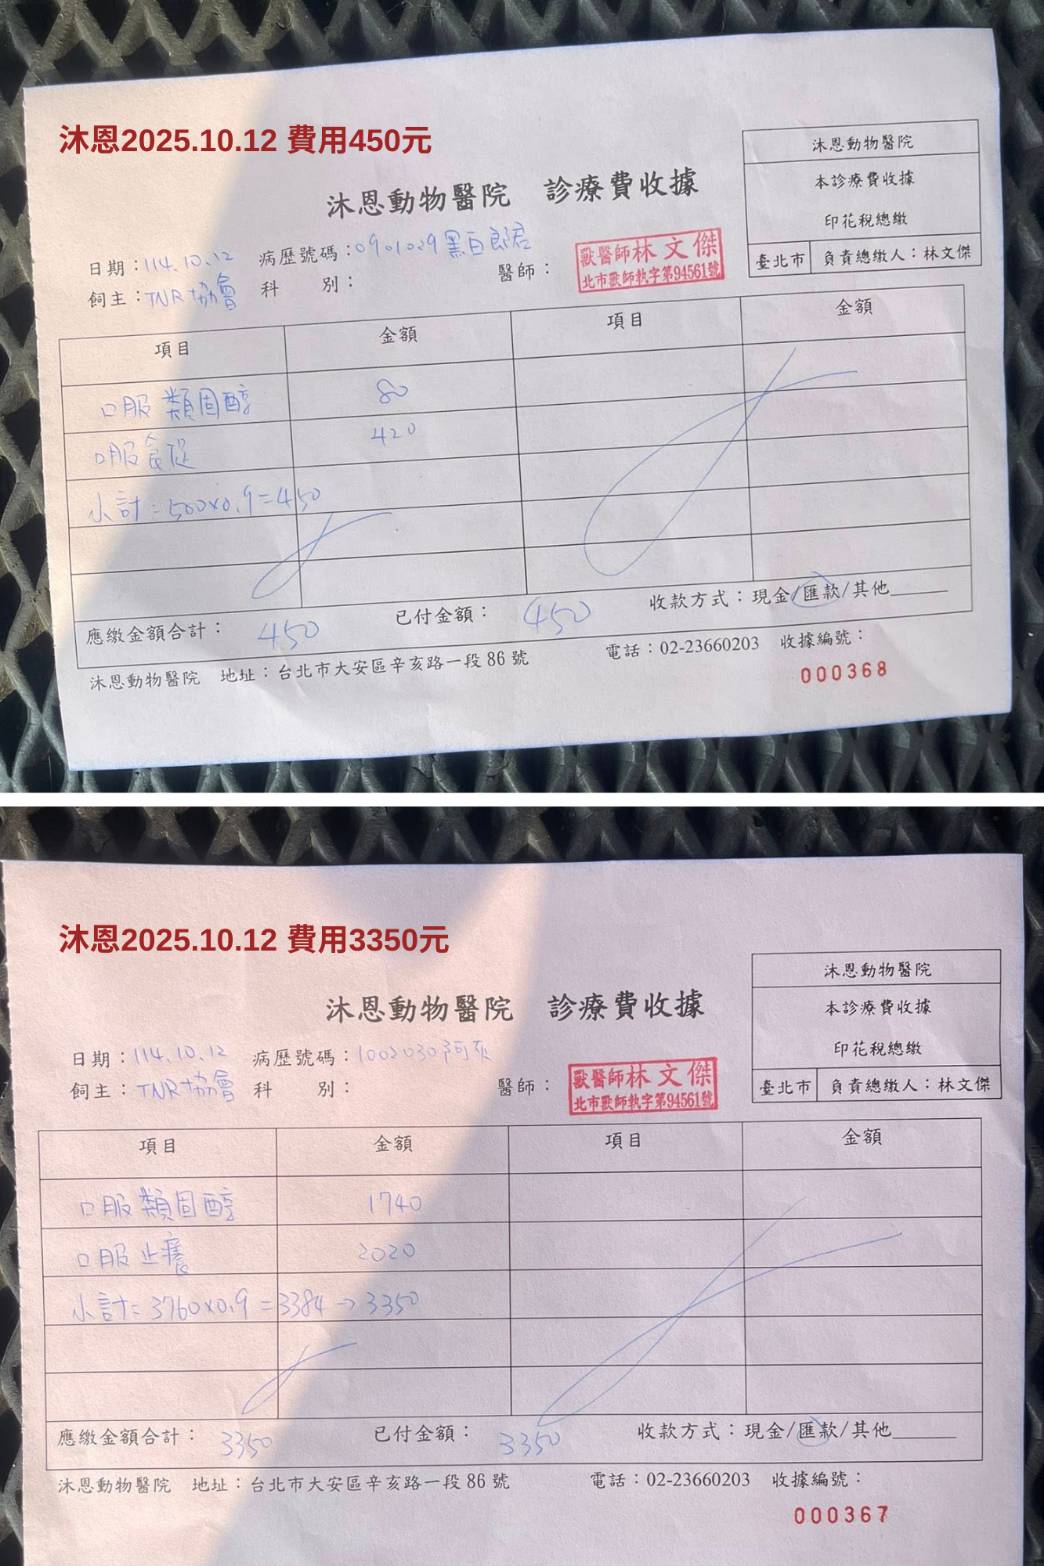 沐恩2025.10.12 費用450元
沐恩動物醫院 診療費收據
沐恩動物醫院
本診療費收據
印花稅總繳
臺北市 負責總繳人：林文傑
日期：114.10.12 病歷號碼：0901029 黑白郎君
飼主：TNR協會 科 別： 醫師：
獸醫師林文傑
北市獸師執字第94561號
項目 金額 項目 金額
口服類固醇 80
口服 420
小計=500x0.9=450
應繳金額合計： 450 已付金額： 450 收款方式：現金/匯款/其他
沐恩動物醫院 地址：台北市大安區辛亥路一段 86 號 電話：02-23660203 收據編號：
000368
沐恩2025.10.12 費用3350元
沐恩動物醫院 診療費收據
沐恩動物醫院
本診療費收據
印花稅總繳
臺北市 負責總繳人：林文傑
日期：114.10.12 病歷號碼：1002030 阿灰
飼主：TNR協會 科 別： 醫師：
獸醫師林文傑
北市獸師執字第94561號
項目 金額 項目 金額
口服類固醇 1740
口服止癢 2020
小計=3760x0.9=3384→3350
應繳金額合計： 3350 已付金額： 3350 收款方式：現金/匯款/其他
沐恩動物醫院 地址：台北市大安區辛亥路一段 86 號 電話：02-23660203 收據編號：
000367